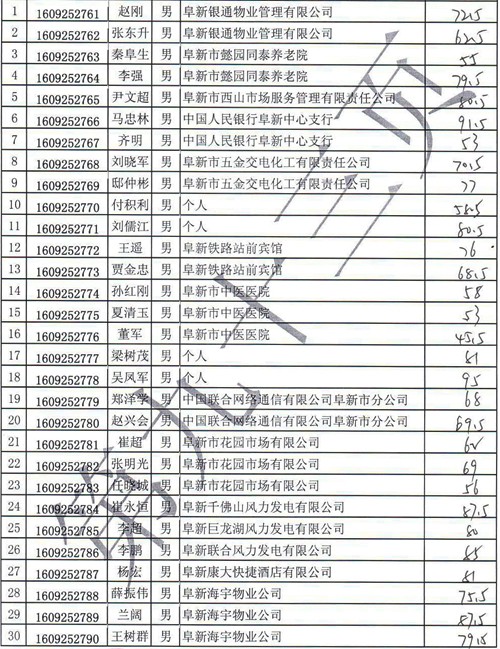 1 1609252761 赵刚 男 阜新银通物业管理有限公司 72.5
2 1609252762 张东升 男 阜新银通物业管理有限公司 62.5
3 1609252763 秦阜生 男 阜新市懿园同泰养老院 55
4 1609252764 李强 男 阜新市懿园同泰养老院 79.5
5 1609252765 尹文超 男 阜新市西山市场服务管理有限责任公司 80.5
6 1609252766 马忠林 男 中国人民银行阜新中心支行 91.5
7 1609252767 齐明 男 中国人民银行阜新中心支行 53
8 1609252768 刘晓军 男 阜新市五金交电化工有限责任公司 70.5
9 1609252769 邸仲彬 男 阜新市五金交电化工有限责任公司 77
10 1609252770 付积利 男 个人 58.5
11 1609252771 刘儒江 男 个人 80.5
12 1609252772 王遥 男 阜新铁路站前宾馆 76
13 1609252773 贾金忠 男 阜新铁路站前宾馆 68.5
14 1609252774 孙红刚 男 阜新市中医医院 58
15 1609252775 夏清玉 男 阜新市中医医院 53
16 1609252776 董军 男 阜新市中医医院 45.5
17 1609252777 梁树茂 男 个人 81
18 1609252778 吴凤军 男 个人 95
19 1609252779 郑泽学 男 中国联合网络通信有限公司阜新市分公司 68
20 1609252780 赵兴会 男 中国联合网络通信有限公司阜新市分公司 69.5
21 1609252781 崔超 男 阜新市花园市场有限公司
22 1609252782 张明光 男 阜新市花园市场有限公司 69
23 1609252783 任晓城 男 阜新市花园市场有限公司 56
24 1609252784 崔永恒 男 阜新千佛山风力发电有限公司 87.5
25 1609252785 李超 男 阜新巨龙湖风力发电有限公司 80
26 1609252786 李鹏 男 阜新联合风力发电有限公司 88
27 1609252787 杨宏 男 阜新康大快捷酒店有限公司 81
28 1609252788 薛振伟 男 阜新海宇物业公司 75.5
29 1609252789 兰阔 男 阜新海宇物业公司 87.5
30 1609252790 王树群 男 阜新海宇物业公司 79.5
第九十三页